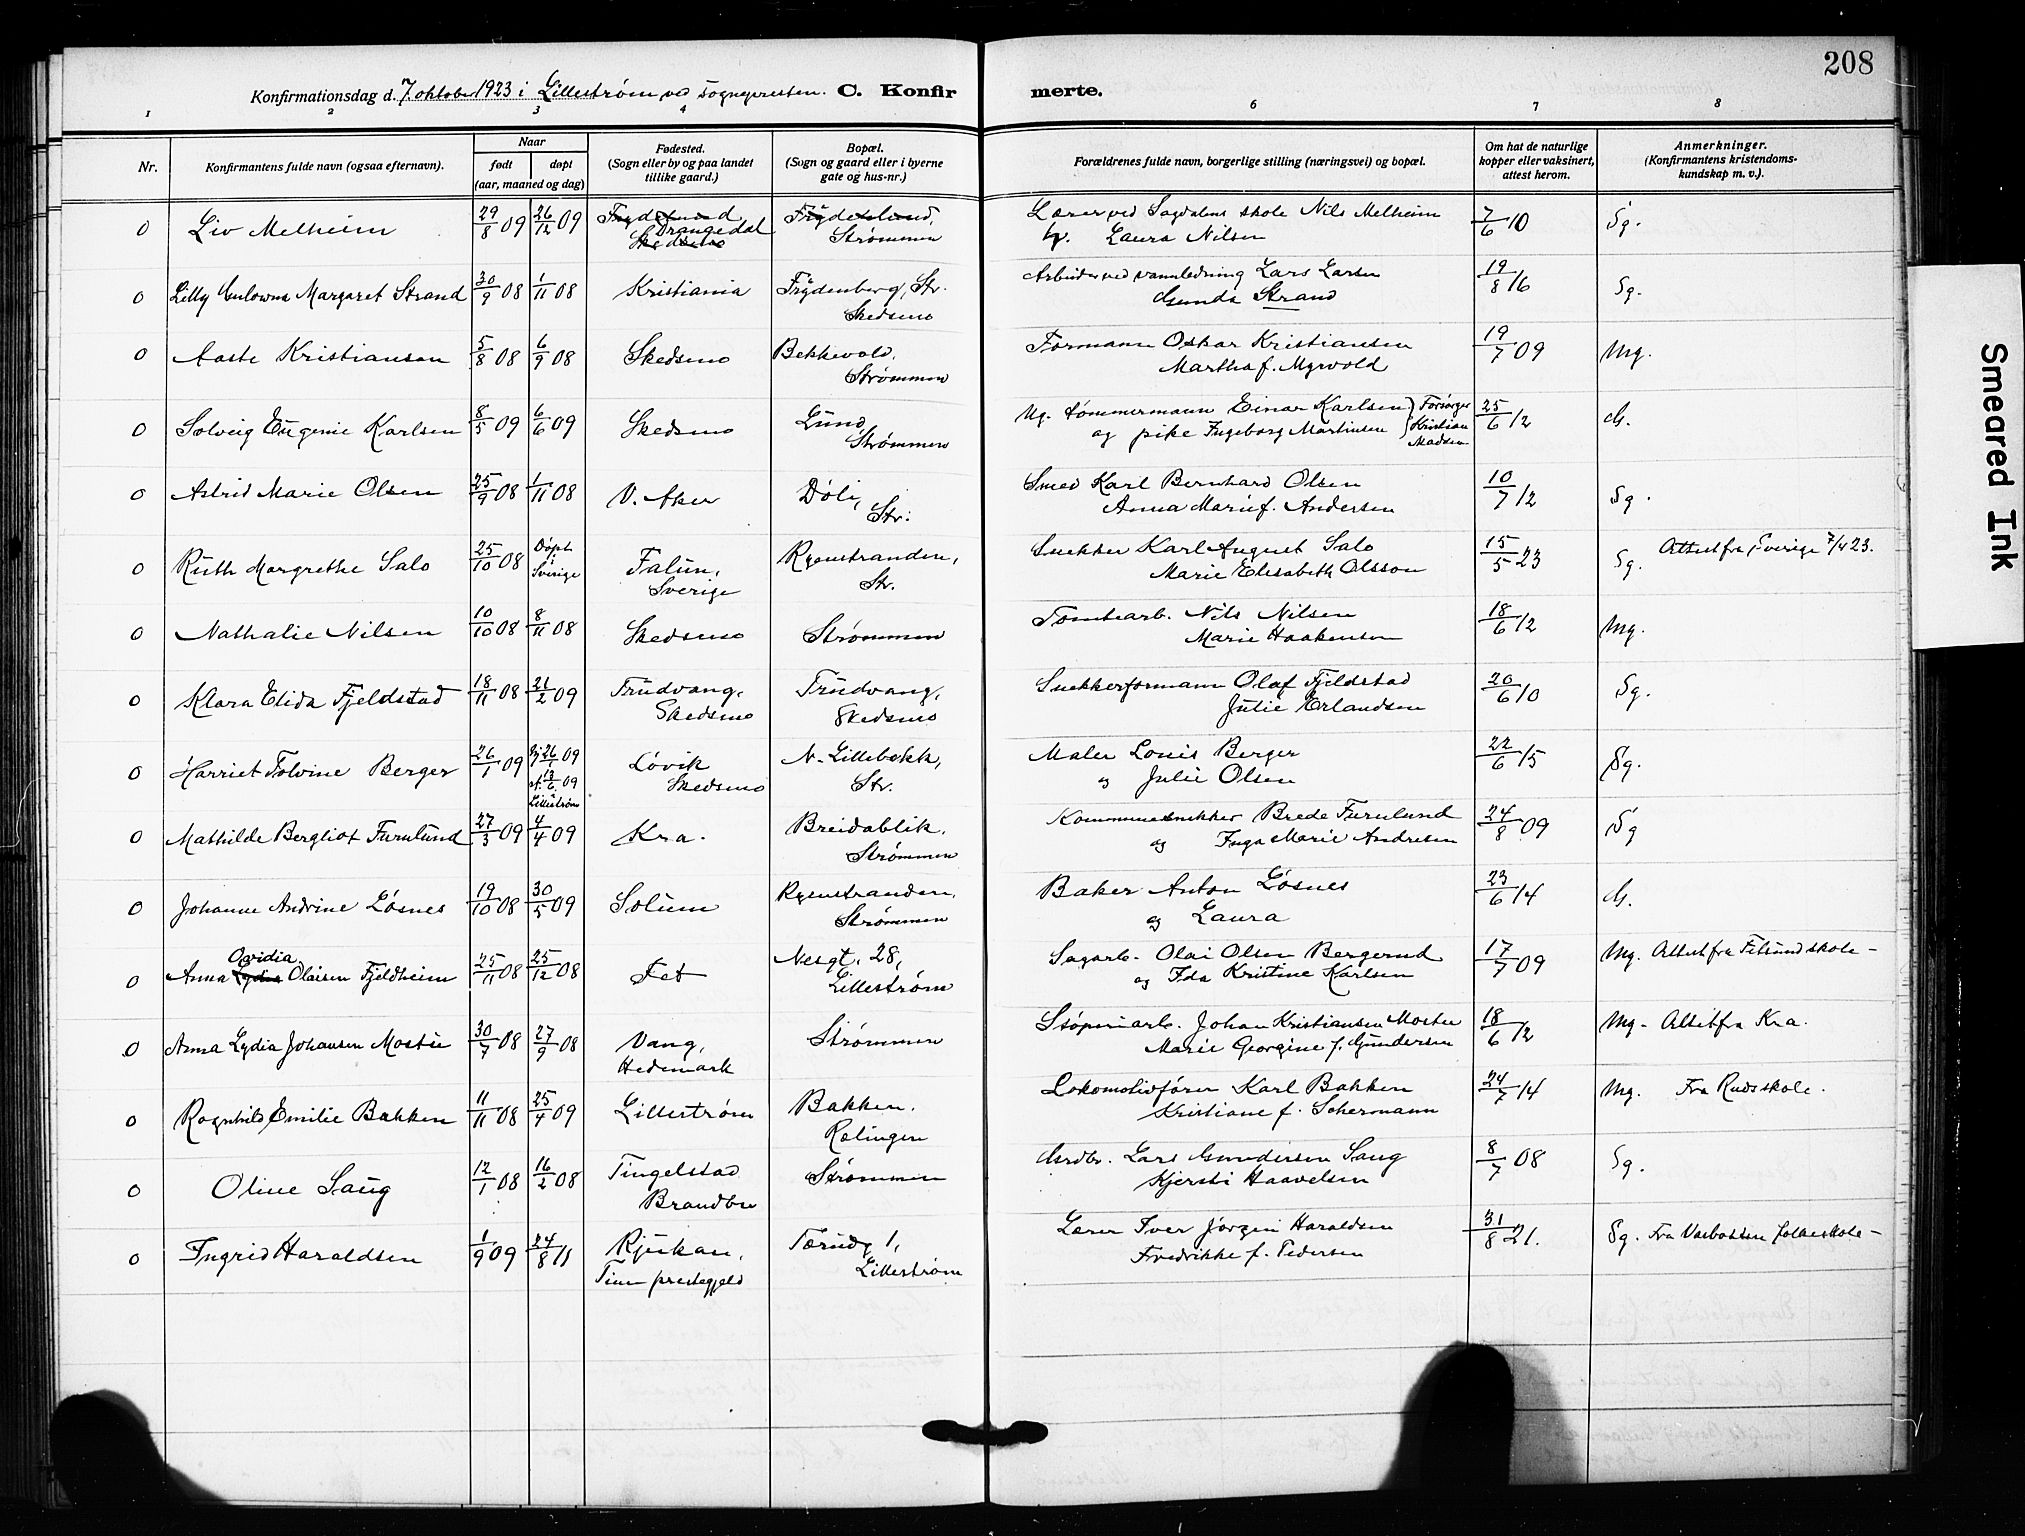 208
Konfirmationsdag d. 7. oktober 1923 i Lillestrøm ved sognepresten. C. Konfirmerte.
1 2 3 4 6 7 8
Nr. Konfirmantens fulde navn (ogsaa efternavn). Naar født døpt (aar, maaned og dag) Fødested. (Sogn eller by og paa landet tillike gaard.) Bopæl. (Sogn og gaard eller i byerne gate og hus-nr.) Forældrenes fulde navn, borgerlige stilling (næringsvei) og bopæl. Om hat de naturlige kopper eller vaksinert, attest herom. Anmerkninger. (Konfirmantens kristendoms-kundskap m. v.).
0 Liv Melheim 29/8 09 26/12 09 Drangedal Strømmen Lærer ved Sagdalens skole Nils Melheim Laura Nilsen 7/6 10 Sg.
0 Lilly Margaret Strand 30/9 08 1/11 08 Kristiania Frydenberg, Str. Skedsmo Arbeider ved vannledning Lars Larsen Gunda Strand 19/8 16 Sg.
0 Aaste Kristiansen 5/8 08 6/9 08 Skedsmo Bekkevold, Strømmen Formann Oskar Kristiansen Martha f. Myrvold 19/7 09 Mg.
0 Solveig Eugenie Karlsen 8/5 09 6/6 09 Skedsmo Lund, Strømmen Ug. tømmermann Einar Karlsen og pike Ingeborg Martinsen } Forsørger Kristian Madsen 25/6 12 G.
0 Astrid Marie Olsen 25/9 08 1/11 08 V. Aker Døli, Str. Smed Karl Bernhard Olsen Anna Marie f. Andersen 10/7 12 Sg.
0 Ruth Margrethe Salo 25/10 08 Døpt i Sverige Falun, Sverige Ryenstranden, Str. Snekker Karl August Salo Marie Elisabeth Olsson 15/5 23 Sg. Attest fra Sverige 7/4 23.
0 Nathalie Nilsen 10/10 08 8/11 08 Skedsmo Strømmen Tomtearb. Nils Nilsen Marie Haakensen 18/6 12 Mg.
0 Klara Elida Fjeldstad 18/11 08 21/2 09 Trudvang, Skedsmo Trudvang, Skedsmo Snekkerformann Olaf Fjeldstad Julie Erlandsen 20/6 10 Sg.
0 Harriet Tolvine Berger 26/1 09 Hj. 26/1 09 st. 13/6 09 Lillestrøm Løvik Skedsmo N. Lillebekk, Str. Maler Louis Berger og Julie Olsen 22/6 15 Sg.
0 Mathilde Bergliot Furulund 27/3 09 4/4 09 Kra. Breidablik, Strømmen Kommunesnekker Brede Furulund og Inga Marie Andresen 24/8 09 Sg
0 Johanne Andrine Løsnes 19/10 08 30/5 09 Solum Ryenstranden, Strømmen Baker Anton Løsnes og Laura 23/6 14 G.
0 Anna Ovidia Olaisen Fjeldheim 25/11 08 25/12 08 Fet Nesgt. 28, Lillestrøm Sagarb. Olai Olsen Bergerud og Ida Kristine Karlsen 17/7 09 Mg. Attest fra Fetsund skole -
0 Anna Lydia Johansen Mostue 30/7 08 27/9 08 Vang, Hedemark Strømmen Støperiarb. Johan Kristiansen Mostue Marie Georgine f. Gundersen 18/6 12 Mg. Attest fra Kra.
0 Ragnhild Emilie Bakken 11/11 08 25/4 09 Lillestrøm Bakken, Rælingen Lokomotivfører Karl Bakken Kristiane f. Schermann 24/7 14 Mg. Fra Rudsskole.
0 Oline Saug 12/1 08 16/2 08 Tingelstad Brandbu Strømmen Grdbr. Lars Gundersen Saug Kjersti Haavelsen 8/7 08 Sg.
0 Ingrid Haraldsen 1/9 09 24/8 11 Rjukan, Tinn prestegjeld Tærudg 1, Lillestrøm Lærer Iver Jørgen Haraldsen Fredrikke f. Pedersen 31/8 21. Sg. Fra folkeskole -
Smeared Ink